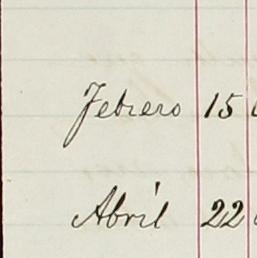 Febrero 15
Abril 22